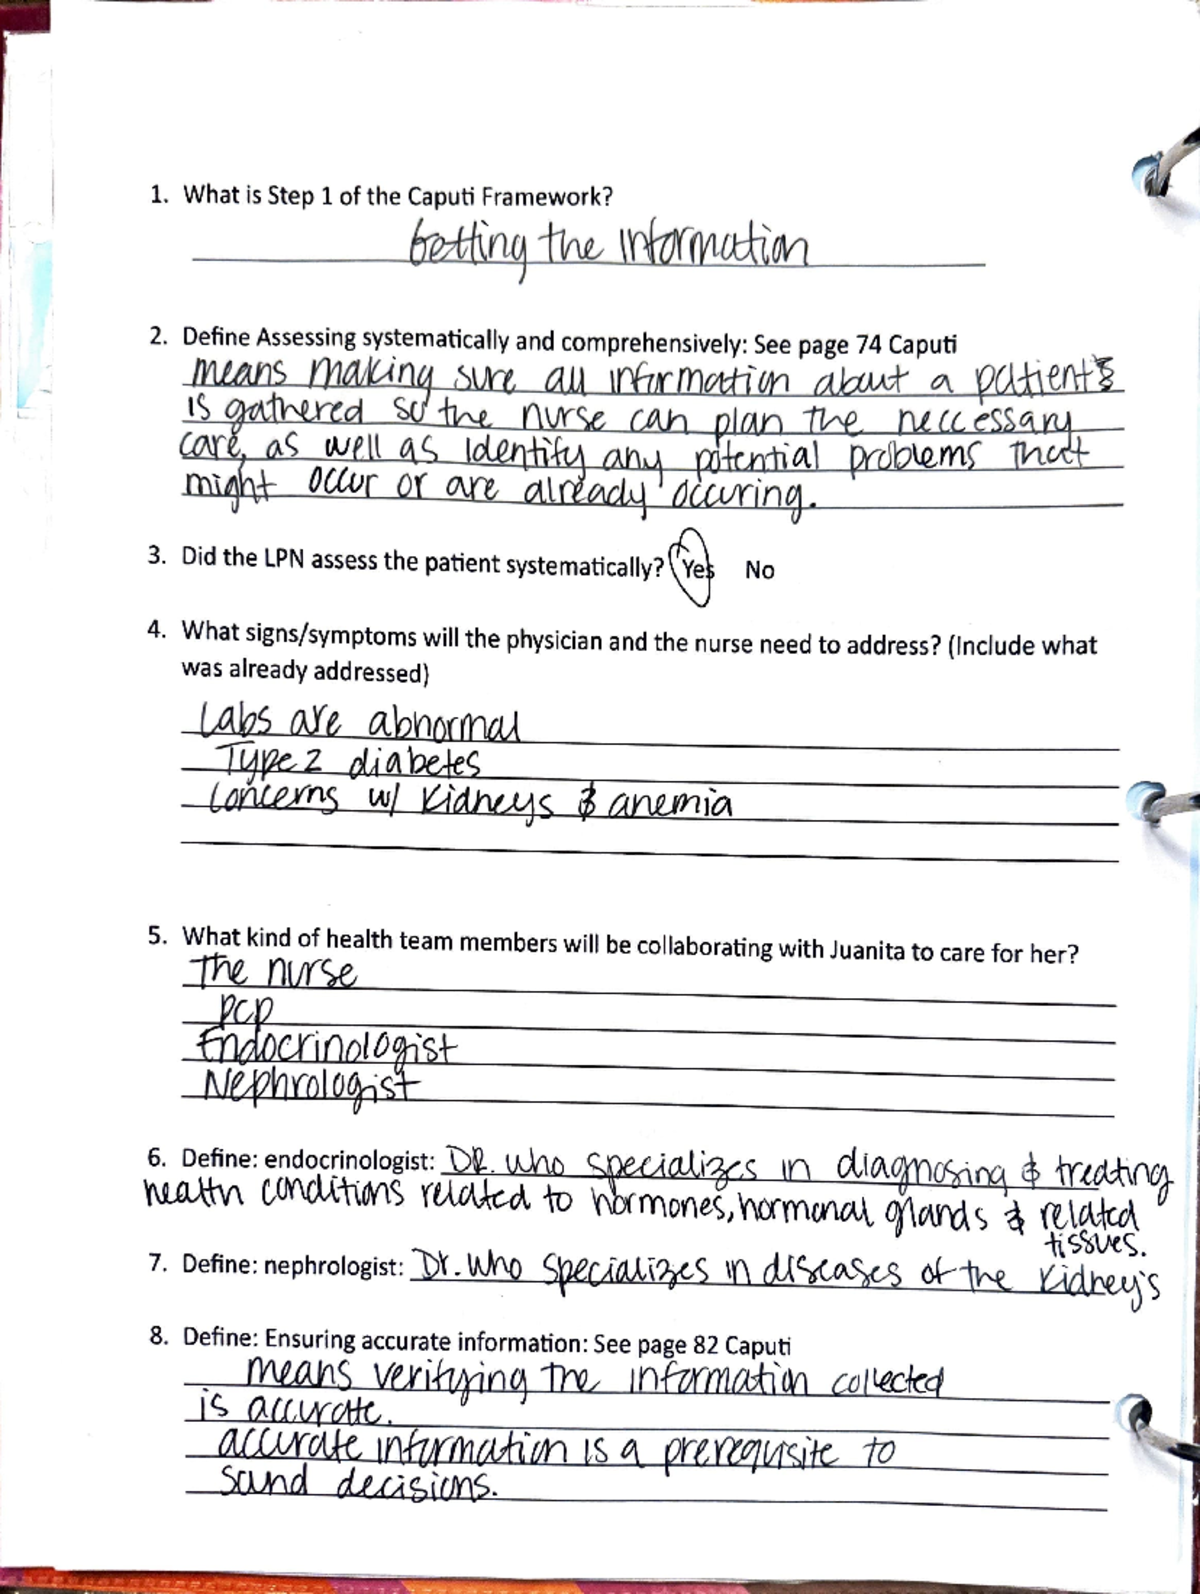 1. What is Step 1 of the Caputi Framework?
Getting the information
2. Define Assessing systematically and comprehensively: See page 74 Caputi
means making sure all information about a patient's
is gathered so the nurse can plan the neccessary
care, as well as identify any potential problems that
might occur or are already occuring.
3. Did the LPN assess the patient systematically? Yes No
4. What signs/symptoms will the physician and the nurse need to address? (Include what
was already addressed)
Labs are abnormal
Type 2 diabetes
Concerns w/ kidneys & anemia
5. What kind of health team members will be collaborating with Juanita to care for her?
The nurse
PCP
Endocrinologist
Nephrologist
6. Define: endocrinologist: DR. who specializes in diagnosing & treating
health conditions related to hormones, hormonal glands & related
tissues.
7. Define: nephrologist: Dr. who specializes in diseases of the kidney's
8. Define: Ensuring accurate information: See page 82 Caputi
means verifying the information collected
is accurate.
accurate information is a prerequisite to
sound decisions.